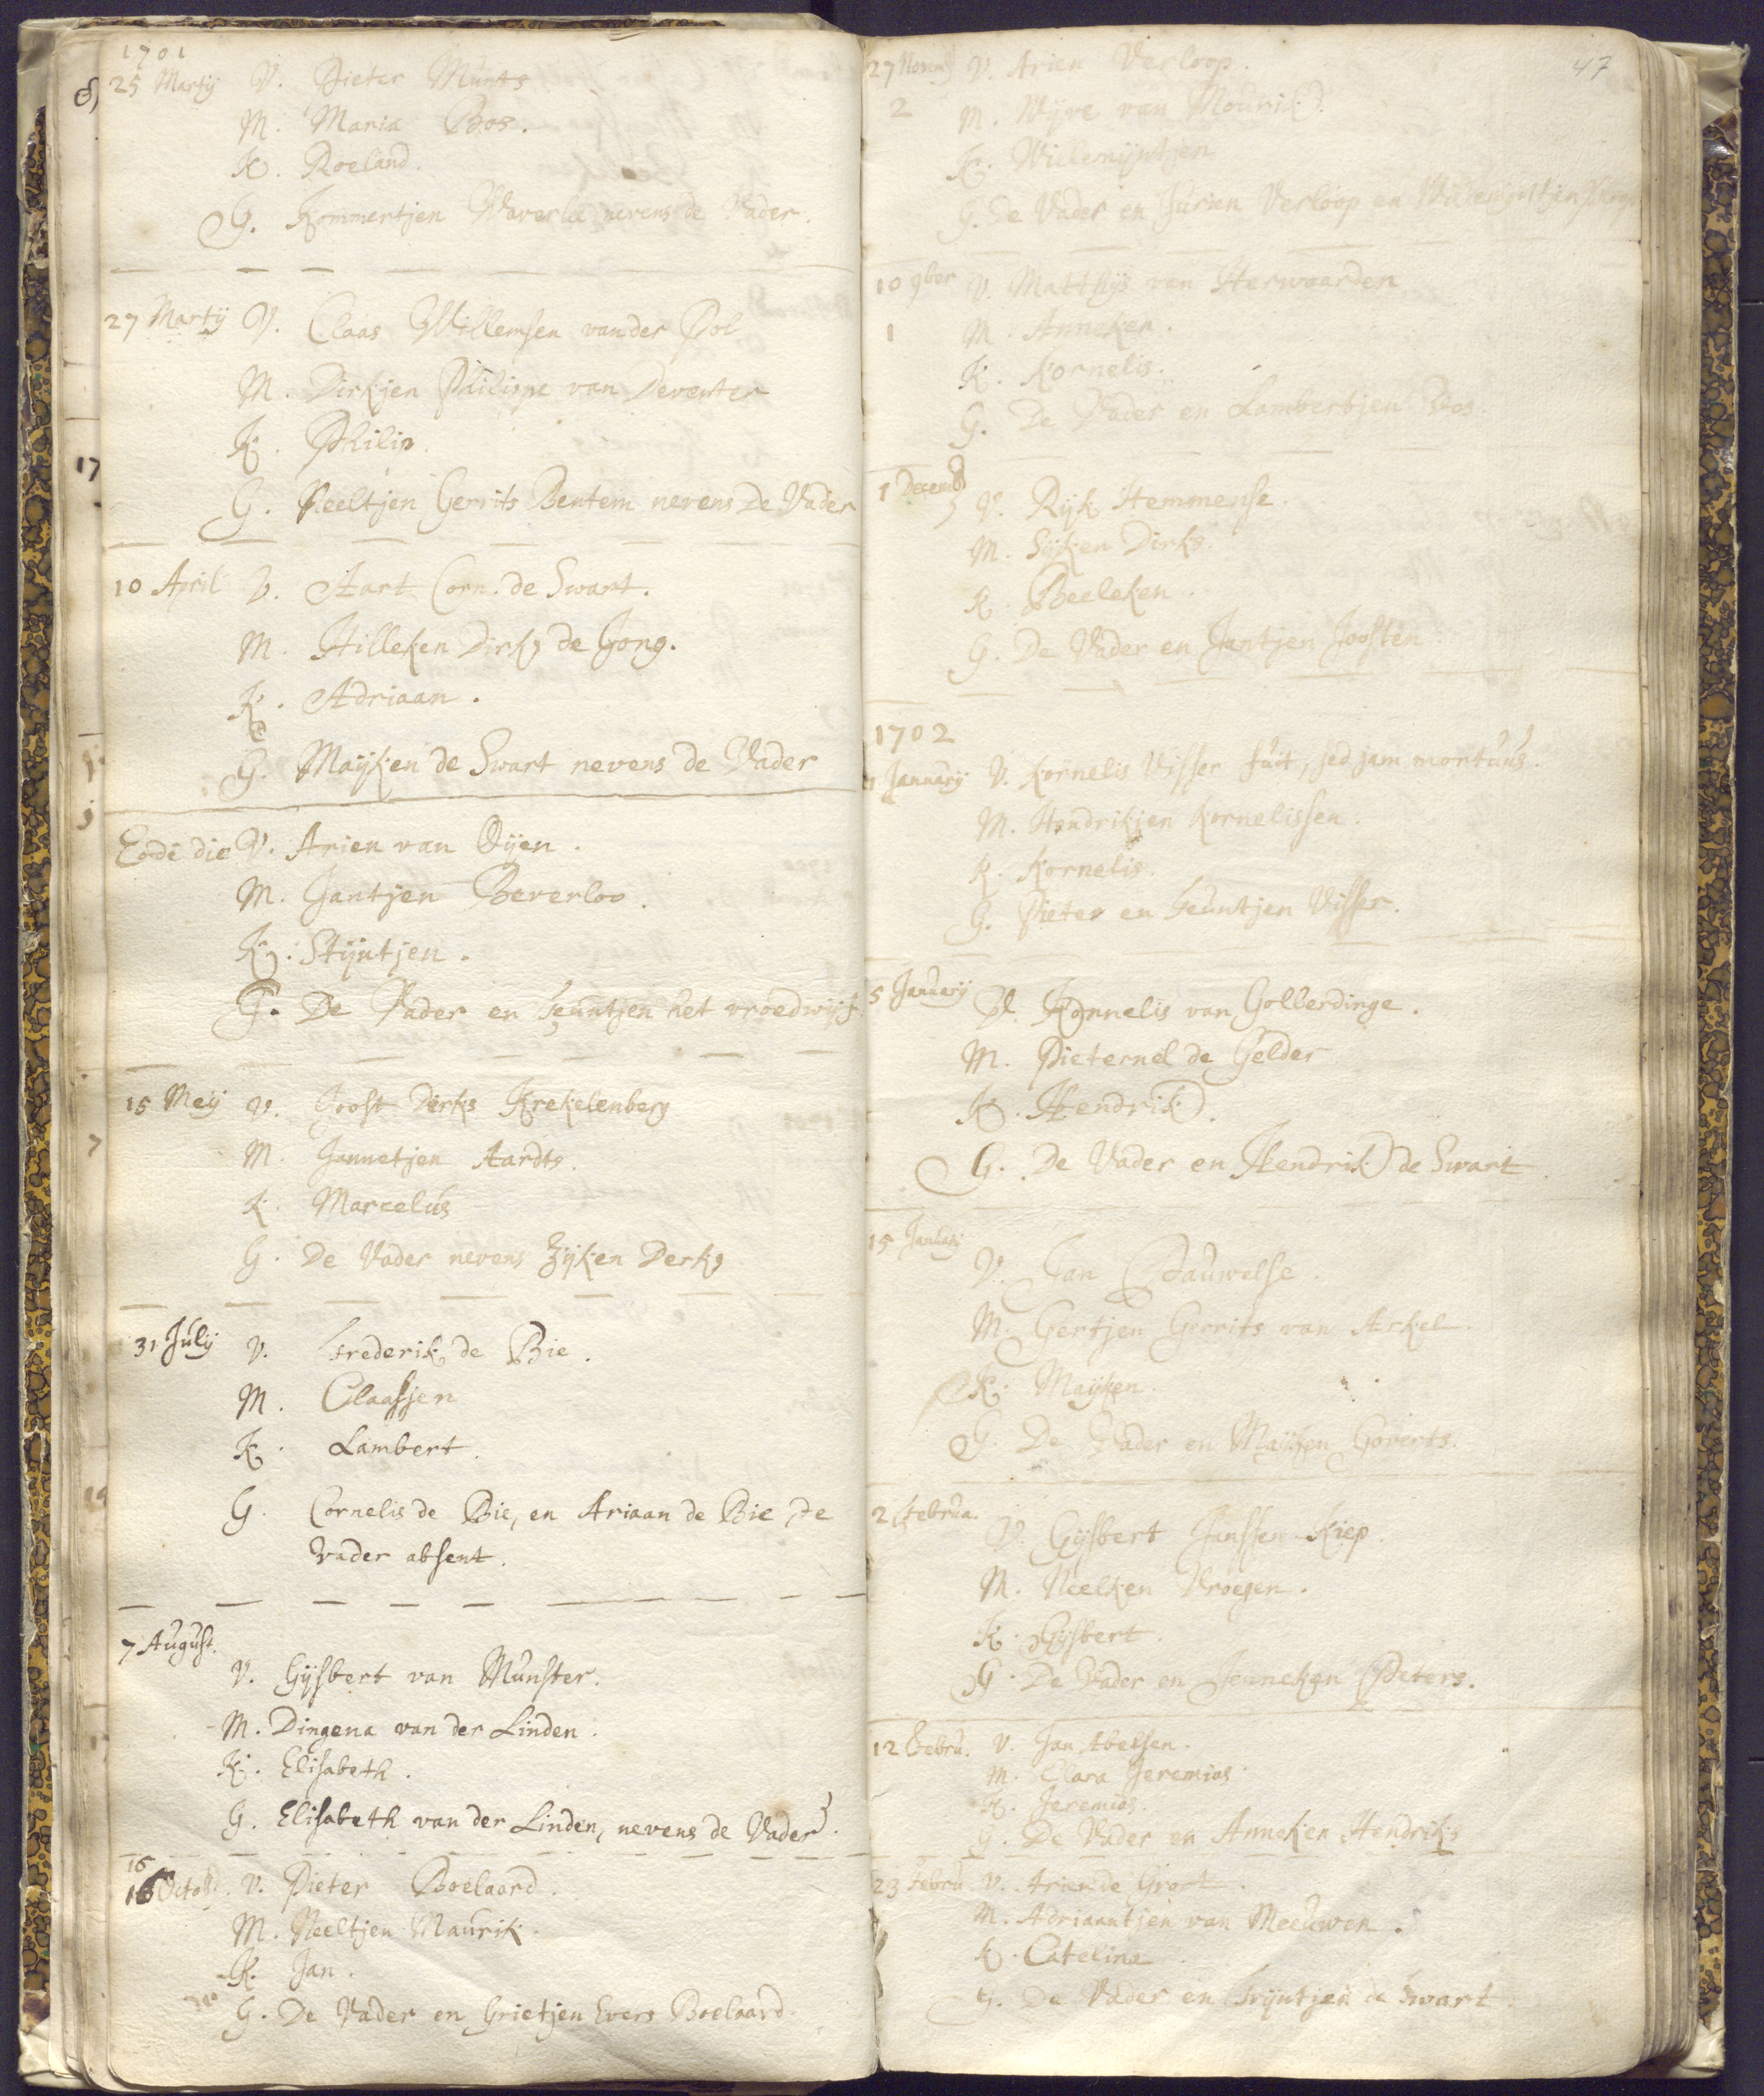 1701
25 Martij V. Pieter Munts
M. Maria Bos.
K. Roeland.
G. Kommertjen Waverlee nevens de Vader.
27 Martij V. Claas Willemsen vander Pol
M. Dirkjen Philippe van Deventer
K. Philip.
17
G. Neeltjen Gerrits Bentem nevens De Vader
10 April V. Aart Corn. de Swart.
M. Hilleken Dirks de Jong.
K. Adriaan.
G. Mayken de Swart nevens de Vader
Eodē die V. Arien van Oijen.
M. Jantjen Beverloo.
K. Stijntjen.
G. De Vader en Teuntjen het vroedwijf.
15 Meij V. Joost Derks Krekelenberg
M. Jannetjen Aardts.
K. Marcelús
G. De Vader nevens Zijken Derks
31 Julij V. Frederik de Bie.
M. Claasjen
K. Lambert.
G. Cornelis de Bie, en Ariaan de Bie, De
vader absent.
7 August.
V. Gijsbert van Munster.
M. Dingena van der Linden.
K. Elisabeth.
G. Elisabeth van der Linden, nevens de Vader.
16
16 Octob. V. Pieter Boelaard.
M. Neeltjen Maurik.
K. Jan.
G. De Vader en Grietjen Evers Boelaard.
47
27 Novem V. Arien Verloop.
2 M. Wijve van Moúrik.
K. Willemijntjen
G. De Vader en Jurien Verloop en Willemijntjen
10 9ber V. Matthijs van Herwaarden
1 M. Anneken.
K. Kornelis.
G. De Vader en Lambertjen Vos.
1 Decemb V. Rijk Hemmense.
M. Sijken Dirks.
K. Beeleken.
G. De Vader en Jantjen Joosten
1702
1 Januarij V. Kornelis Visser fuit, sed jam mortuus.
M. Hendrikjen Kornelissen.
K. Kornelis.
G. Pieter en Teuntjen Visser.
5 Januarij V. Kornelis van Golberdinge.
M. Pieternel de Gelder
K. Hendrik.
G. De Vader en Hendrik de Swart
15 Januarij
V. Jan Pauwelse.
M. Gertjen Gerrits van Arkel.
K. Mayken.
G. De Vader en Mayken Goverts.
2 Februa.
V. Gijsbert Janssen Kiep.
M. Neelken Vroegen.
K. Gijsbert.
G. De Vader en Jenneken Peters.
12 Febru. V. Jan Abelsen.
M. Clara Jeremias.
K. Jeremias.
G. De Vader en Anneken Hendriks
23 Febru V. Arien de Groot.
M. Adriaantjen van Meeuwen.
K. Cateline.
G. De Vader en Trijntjen de Swart.